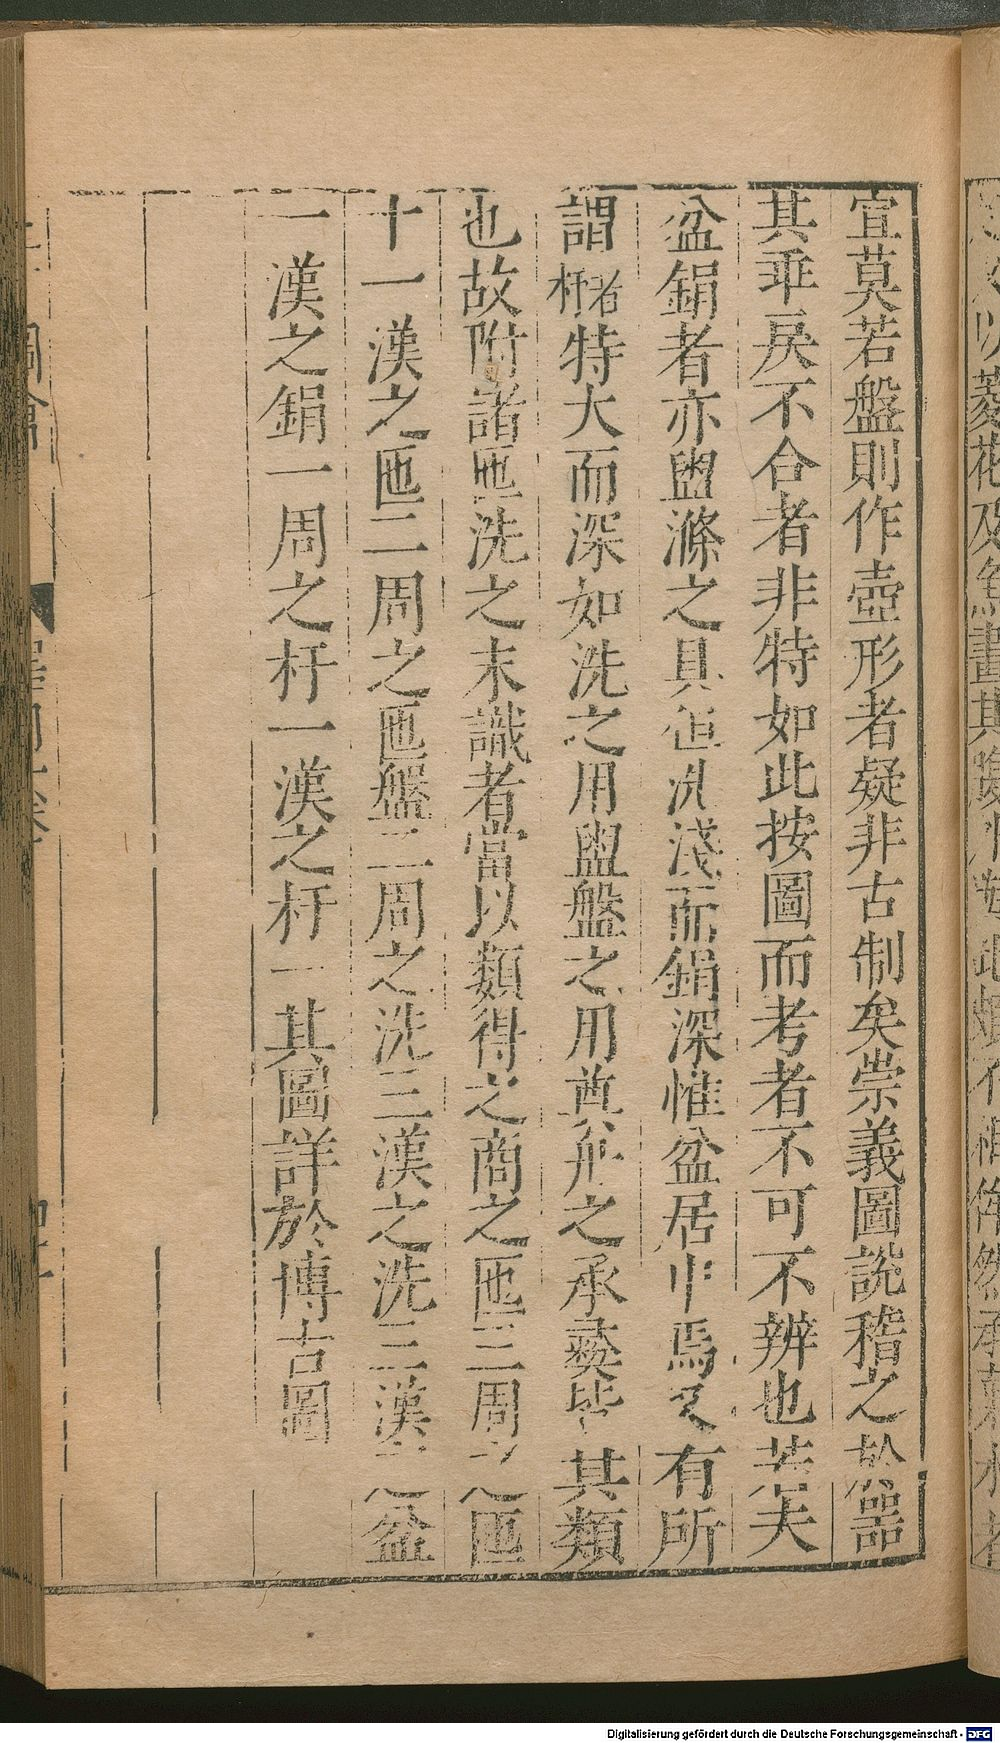 宜莫若盤則作壺形者疑非古制矣崇義圖說稽之於器
其乖戾不合者非特如此按圖而考者不可不辨也若夫
盆鋗者亦盥滌之具但洗淺而鋗深惟盆居中焉又有所
謂杅者特大而深如洗之用盥盤之用奠舟之承彝皆其類
也故附諸匜洗之末識者當以類得之商之匜三周之匜
十一漢之匜二周之匜盤二周之洗三漢之洗三漢之盆
一漢之鋗一周之杅一漢之杅一其圖詳於博古圖
Digitalisierung gefördert durch die Deutsche Forschungsgemeinschaft - DFG